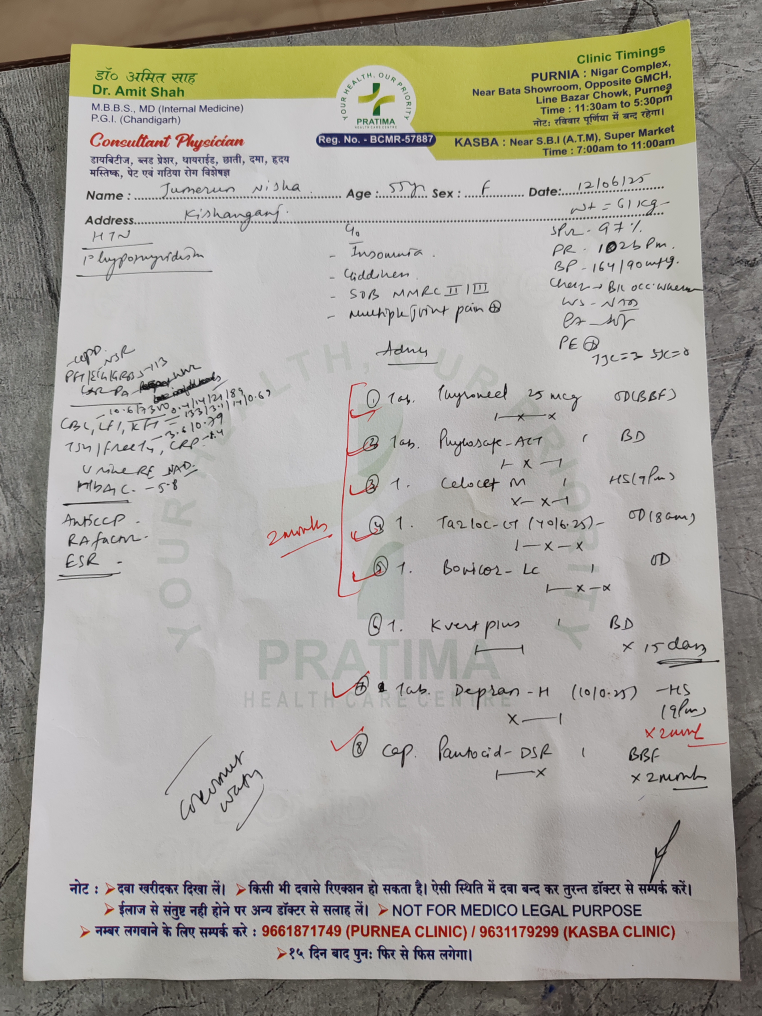 डॉ० अमित साह
Dr. Amit Shah
M.B.B.S., MD (Internal Medicine)
P.G.I. (Chandigarh)
Consultant Physician
डायबिटीज, ब्लड प्रेशर, थायराईड, छाती, दमा, हृदय
मस्तिष्क, पेट एवं गठिया रोग विशेषज्ञ
YOUR HEALTH, OUR PRIORITY
PRATIMA
HEALTH CARE CENTRE
Reg. No. - BCMR-57887
Clinic Timings
PURNIA : Nigar Complex,
Near Bata Showroom, Opposite GMCH,
Line Bazar Chowk, Purnea
Time : 11:30am to 5:30pm
नोट: रविवार पूर्णिया में बन्द रहेगा।
KASBA : Near S.B.I (A.T.M), Super Market
Time : 7:00am to 11:00am
Name : Jumerun Nisha Age : 55yr Sex : F Date: 12/06/25
Address Kishanganj
wt = 61 kg
HTN
1° hypothyroidism
C/o
- Insomnia
- Giddiness
- SOB MMRC II/III
- Multiple joint pain +
SPO2 - 97%
PR - 102 bpm
BP - 164/90 mmHg
PE +
TJC=2 SJC=0
NSR
CBC, LFT, KFT
TSH/Free T4, CRP
Urine RE NAD
HbA1C - 5.8
Anti CCP
RA factor
ESR
Advice
2 months
1 Tab. Thyronorm 25 mcg OD (BBF)
1 — x — x
2 Tab. BD
1 — x — 1
3 T. M HS (9pm)
x — x — 1
4 T. Tazloc-CT (40/6.25) - OD (8am)
1 — x — x
5 T. OD
1 — x — x
6 T. Kvert plus BD
x 15 days
7 Tab. Depran-H (10/0.25) - HS
(9pm)
x — 1
x 2 month
8 Cap. Pantocid-DSR BBF
1 — x
x 2 months
coconut
water
YOUR HEALTH, OUR PRIORITY
PRATIMA
HEALTH CARE CENTRE
नोट : ➤दवा खरीदकर दिखा लें। ➤किसी भी दवासे रिएक्शन हो सकता है। ऐसी स्थिति में दवा बन्द कर तुरन्त डॉक्टर से सम्पर्क करें।
➤ईलाज से संतुष्ट नही होने पर अन्य डॉक्टर से सलाह लें। ➤NOT FOR MEDICO LEGAL PURPOSE
➤नम्बर लगवाने के लिए सम्पर्क करे : 9661871749 (PURNEA CLINIC) / 9631179299 (KASBA CLINIC)
➤१५ दिन बाद पुन: फिर से फिस लगेगा।